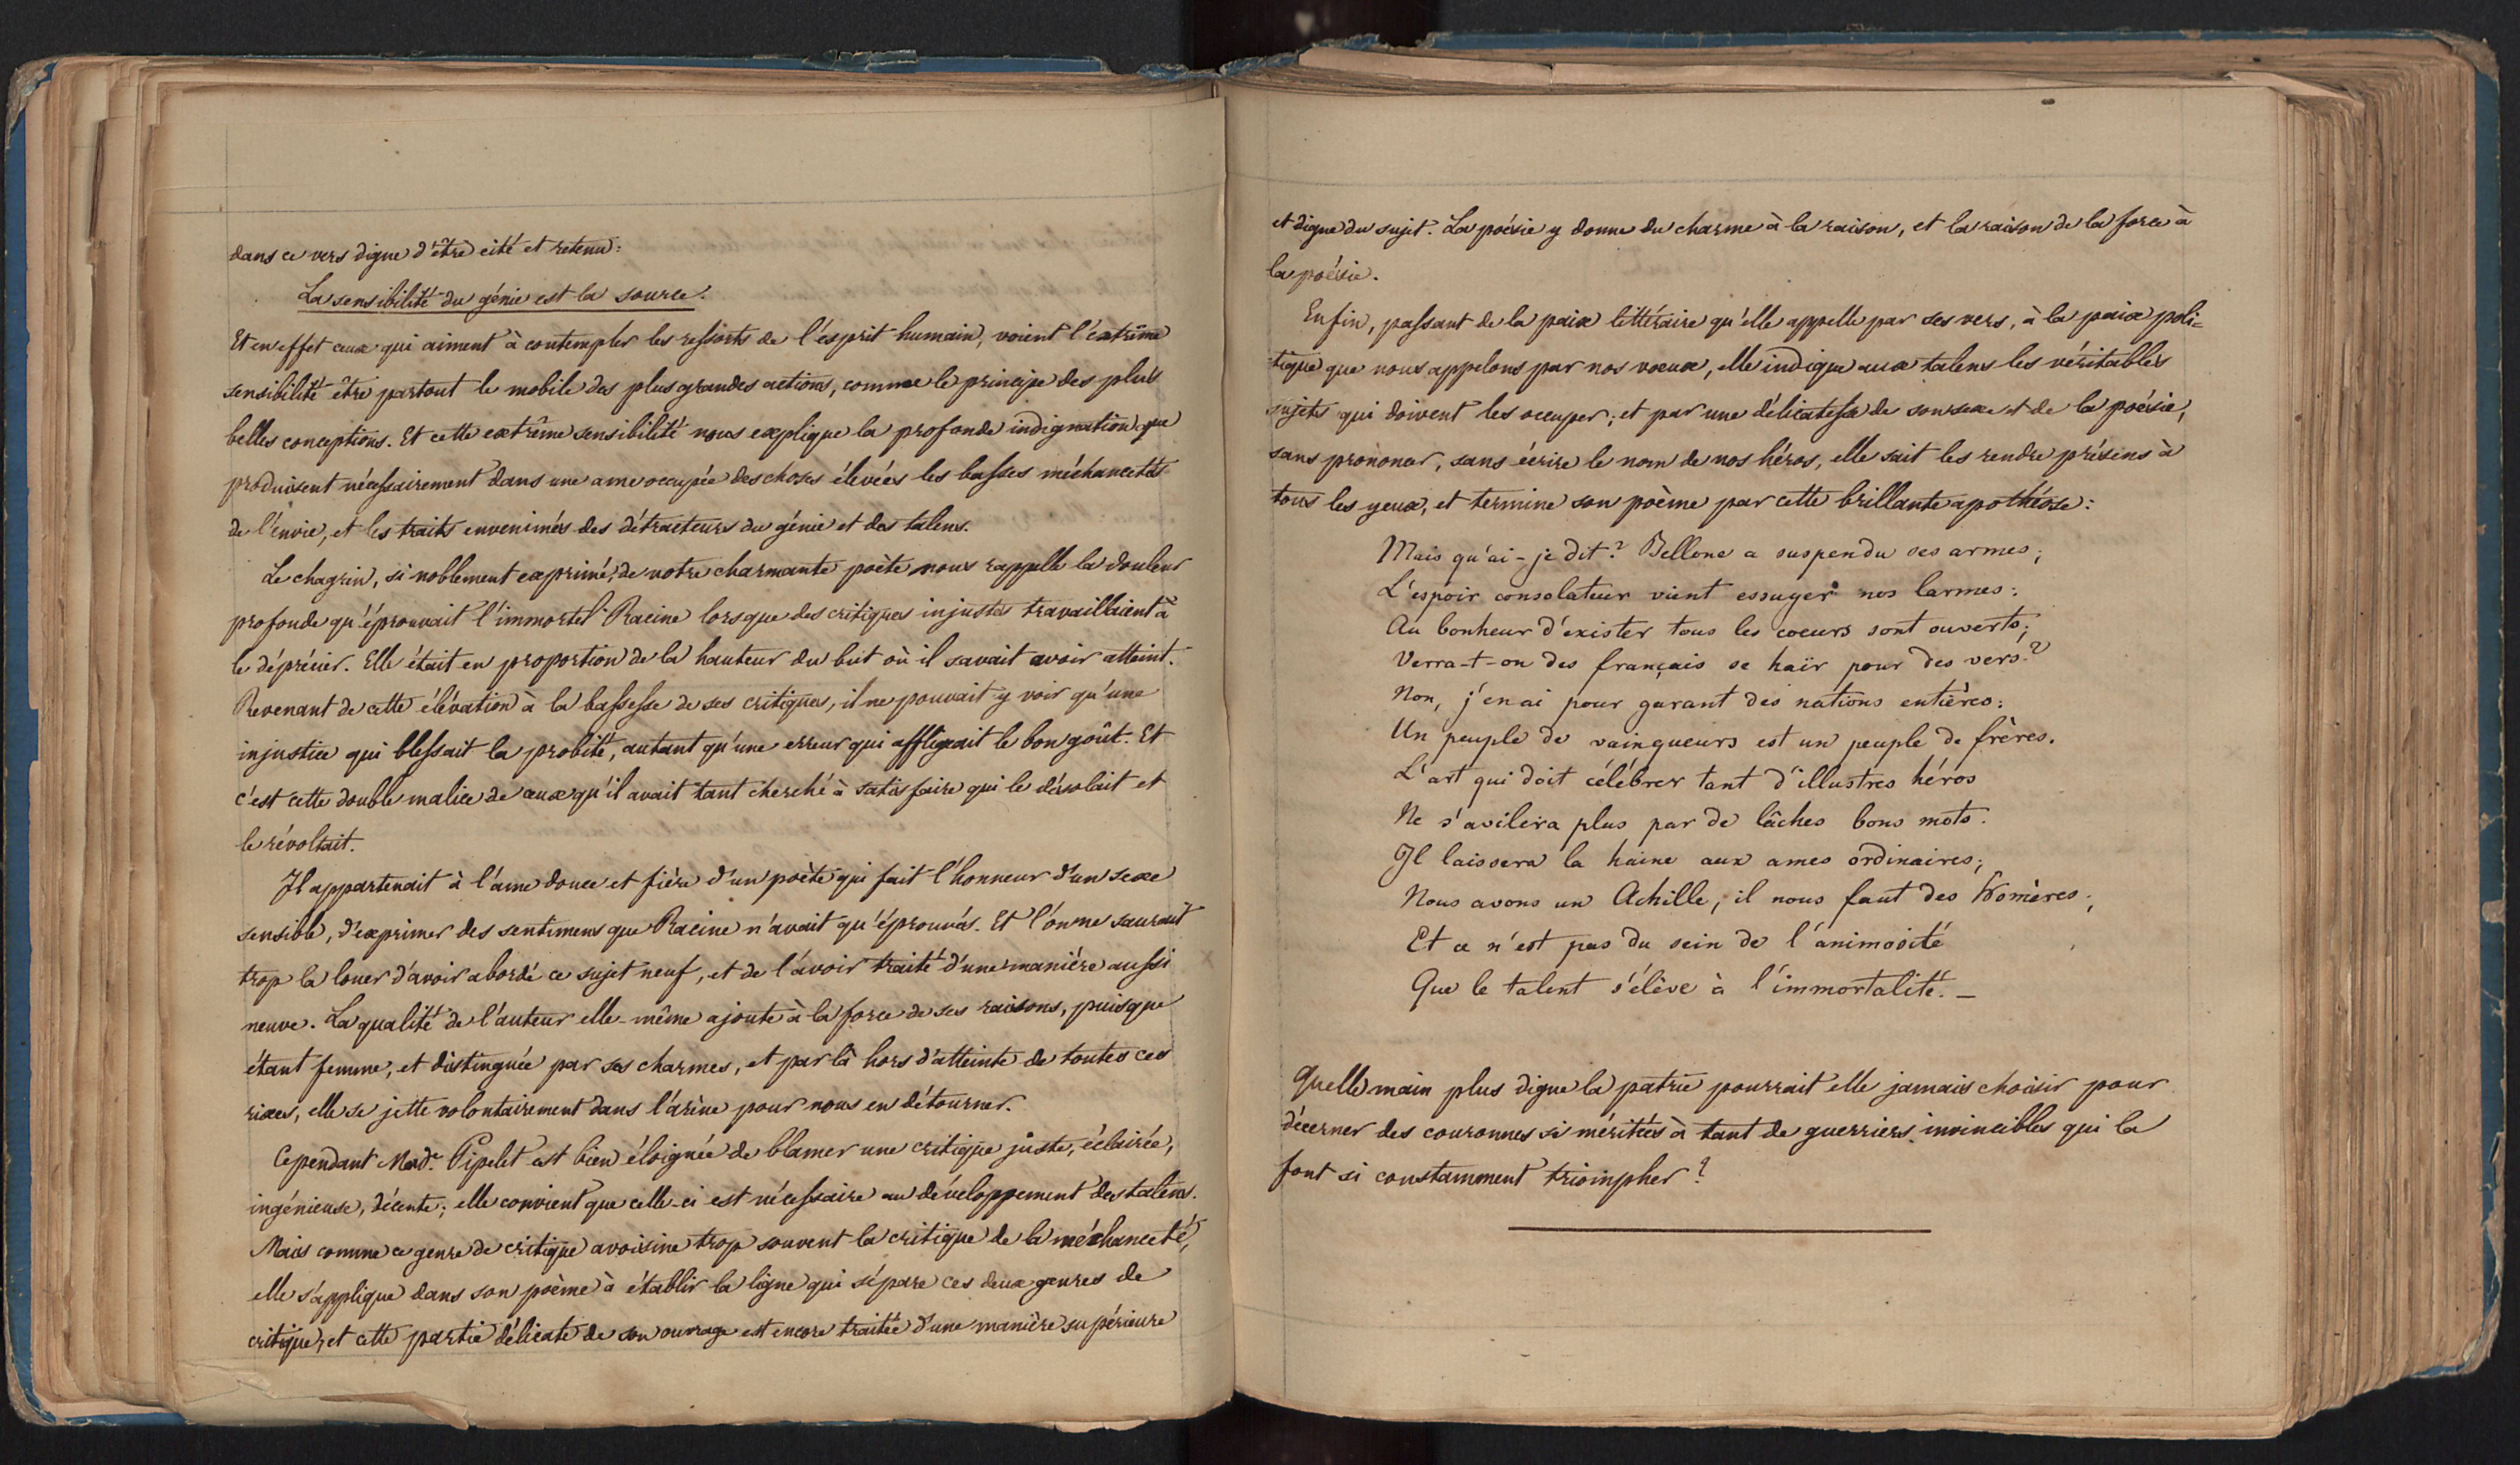 dans ce vers digne d'être cité et retenu:
La sensibilité du génie est la source.
Et en effet ceux qui aiment à contempler les ressorts de l'esprit humain, voient l'extrême
sensibilité être partout le mobile des plus grandes actions, comme le principe des plus
belles conceptions. Et cette extrême sensibilité nous explique la profonde indignation que
produisent nécessairement dans une ame occupée des choses élevées les basses méchancetés
de l'envie, et les traits envenimés des détracteurs du génie et des talens.
Le chagrin, si noblement exprimé, de notre charmante poète nous rappelle la douleur
profonde qu'éprouvait l'immortel Racine lorsque des critiques injustes travaillaient à
le déprécier. Elle était en proportion de la hauteur du but où il savait avoir atteint.
Revenant de cette élévation à la bassesse de ses critiques, il ne pouvait y voir qu'une
injustice qui blessait la probité, autant qu'une erreur qui affligeait le bon goût. Et
c'est cette double malice de ceux qu'il avait tant cherché à satisfaire qui le désolait et
le révoltait.
Il appartenait à l'ame douce et fière d'un poète qui fait l'honneur d'un sexe
sensible, d'exprimer des sentimens que Racine n'avait qu'éprouvés. Et l'on ne saurait
trop la louer d'avoir abordé ce sujet neuf, et de l'avoir traité d'une manière aussi
neuve. La qualité de l'auteur elle-même ajoute à la force de ses raisons, puisque
étant femme, et distinguée par ses charmes, et par là hors d'atteinte de toutes ces
rixes, elle se jette volontairement dans l'arène pour nous en détourner.
Cependant Made. Pipelet est bien éloignée de blamer une critique juste, éclairée,
ingénieuse, décente; elle convient que celle-ci est nécessaire au développement des talens.
Mais comme ce genre de critique avoisine trop souvent la critique de la méchanceté,
elle s'applique dans son poème à établir la ligne qui sépare ces deux genres de
critique, et cette partie délicate de son ouvrage est encore traitée d'une manière supérieure
et digne du sujet. La poésie y donne du charme à la raison, et la raison de la force à
la poésie.
Enfin, passant de la paix littéraire qu'elle appelle par ses vers, à la paix poli=
tique que nous appelons par nos voeux, elle indique aux talens les véritables
sujets qui doivent les occuper; et par une délicatesse de son sexe et de la poésie,
sans prononcer, sans écrire le nom de nos héros, elle sait les rendre présens à
tous les yeux, et termine son poème par cette brillante apothéose:
Mais qu'ai-je dit? Bellone a suspendu ses armes;
L'espoir consolateur vient essuyer nos larmes:
Au bonheur d'exister tous les coeurs sont ouverts;
Verra-t-on des français se haïr pour des vers?
Non, j'en ai pour garant des nations entières:
Un peuple de vainqueurs est un peuple de frères.
L'art qui doit célébrer tant d'illustres héros
Ne s'avilira plus par de lâches bons mots.
Il laissera la haine aux ames ordinaires;
Nous avons un Achille, il nous faut des Homères;
Et ce n'est pas du sein de l'animosité
Que le talent s'élève à l'immortalité. —
Quelle main plus digne la patrie pourrait elle jamais choisir pour
décerner des couronnes si méritées à tant de guerriers invincibles qui la
font si constamment triompher?